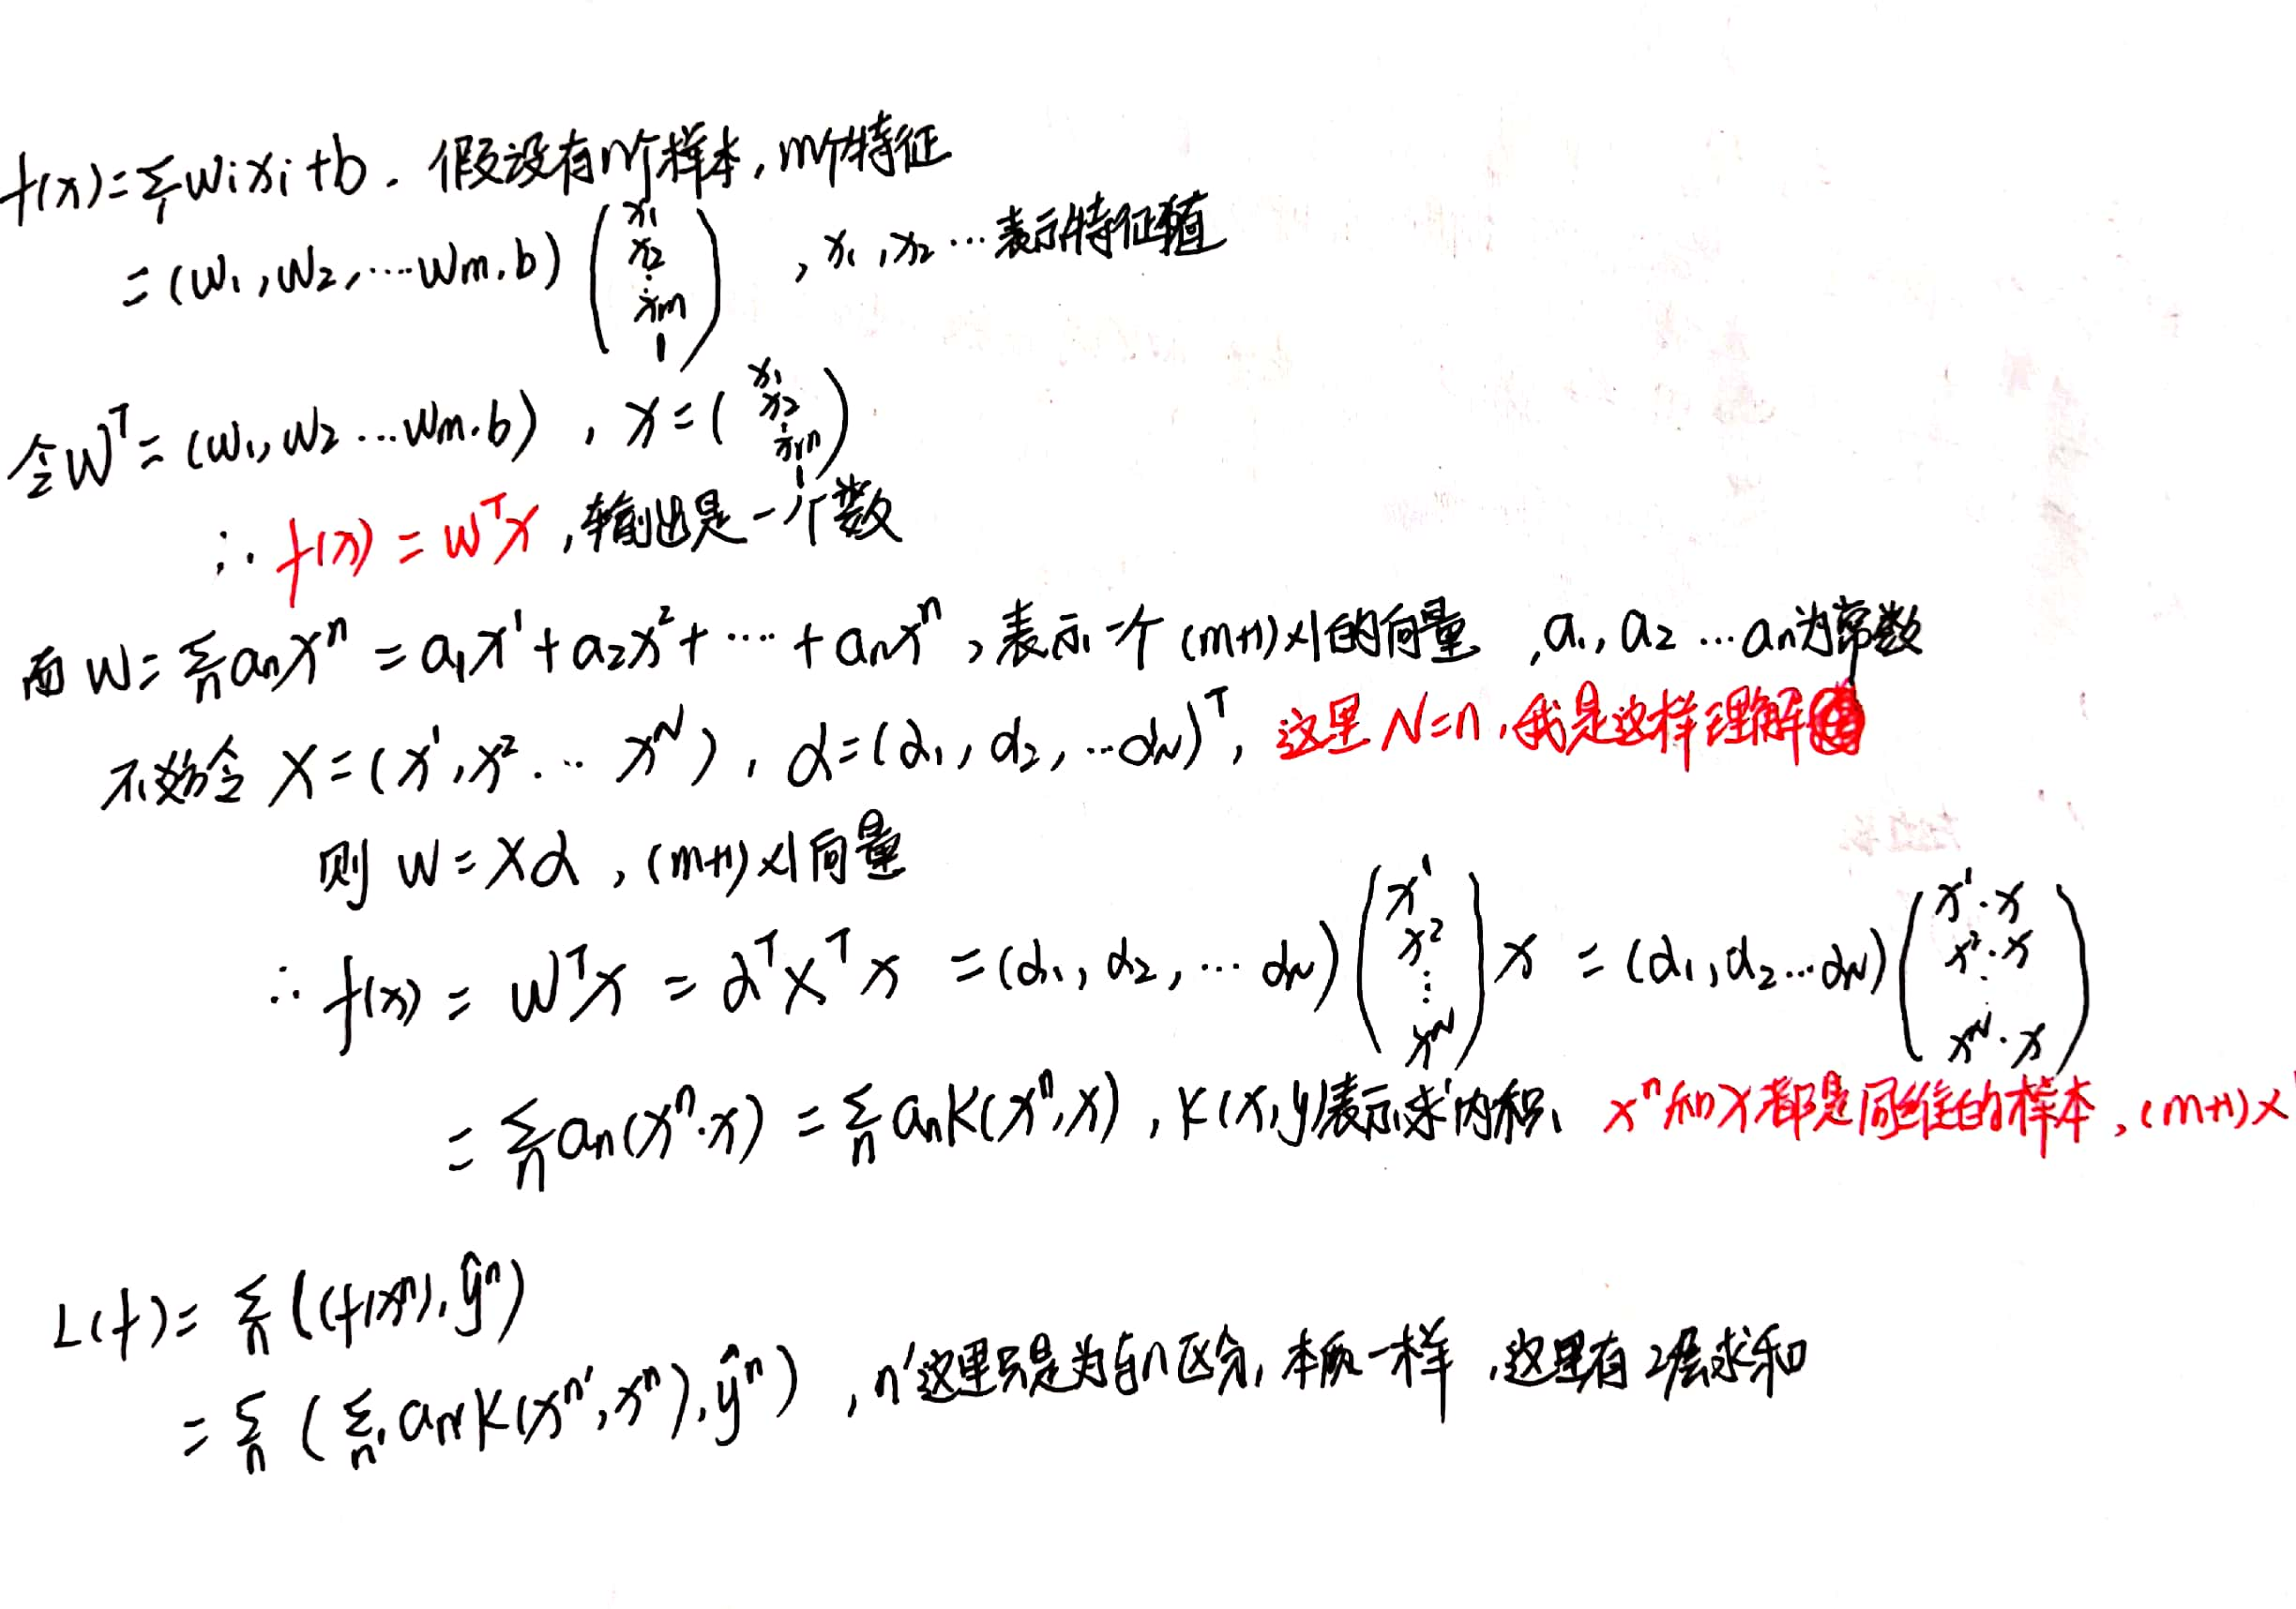 f(x)=Σi wixi+b. 假设有n个样本,m个特征
=(w1,w2,....wm.b) (x1 x2 ⋮ xm 1) ,x1,x2...表示特征值
令W^T=(w1,w2...wm.b) , x=(x1 x2 ⋮ xm 1)
∴ f(x)=w^Tx,输出是一个数
而W=Σn anx^n=a1x^1+a2x^2+....+anx^n,表示一个(m+1)×1的向量,a1,a2...an为常数
不妨令X=(x^1,x^2...x^N), α=(α1,α2,...αN)^T, 这里N=n,我是这样理解
则W=Xα,(m+1)×1向量
∴ f(x)=W^Tx=α^TX^Tx=(α1,α2,...αN)(x^1 x^2 ⋮ x^N)x=(α1,α2...αN)(x^1·x x^2·x ⋮ x^N·x)
=Σn an(x^n·x)=Σn anK(x^n,x),K(x,y)表示求内积、 x^n和x都是同维的样本,(m+1)×
L(f)=Σn l(f(x^n),ŷ^n)
=Σn (Σn' an'K(x^n',x^n),ŷ^n) ,n'这里只是为与n区分,本质一样,这里有2层求和